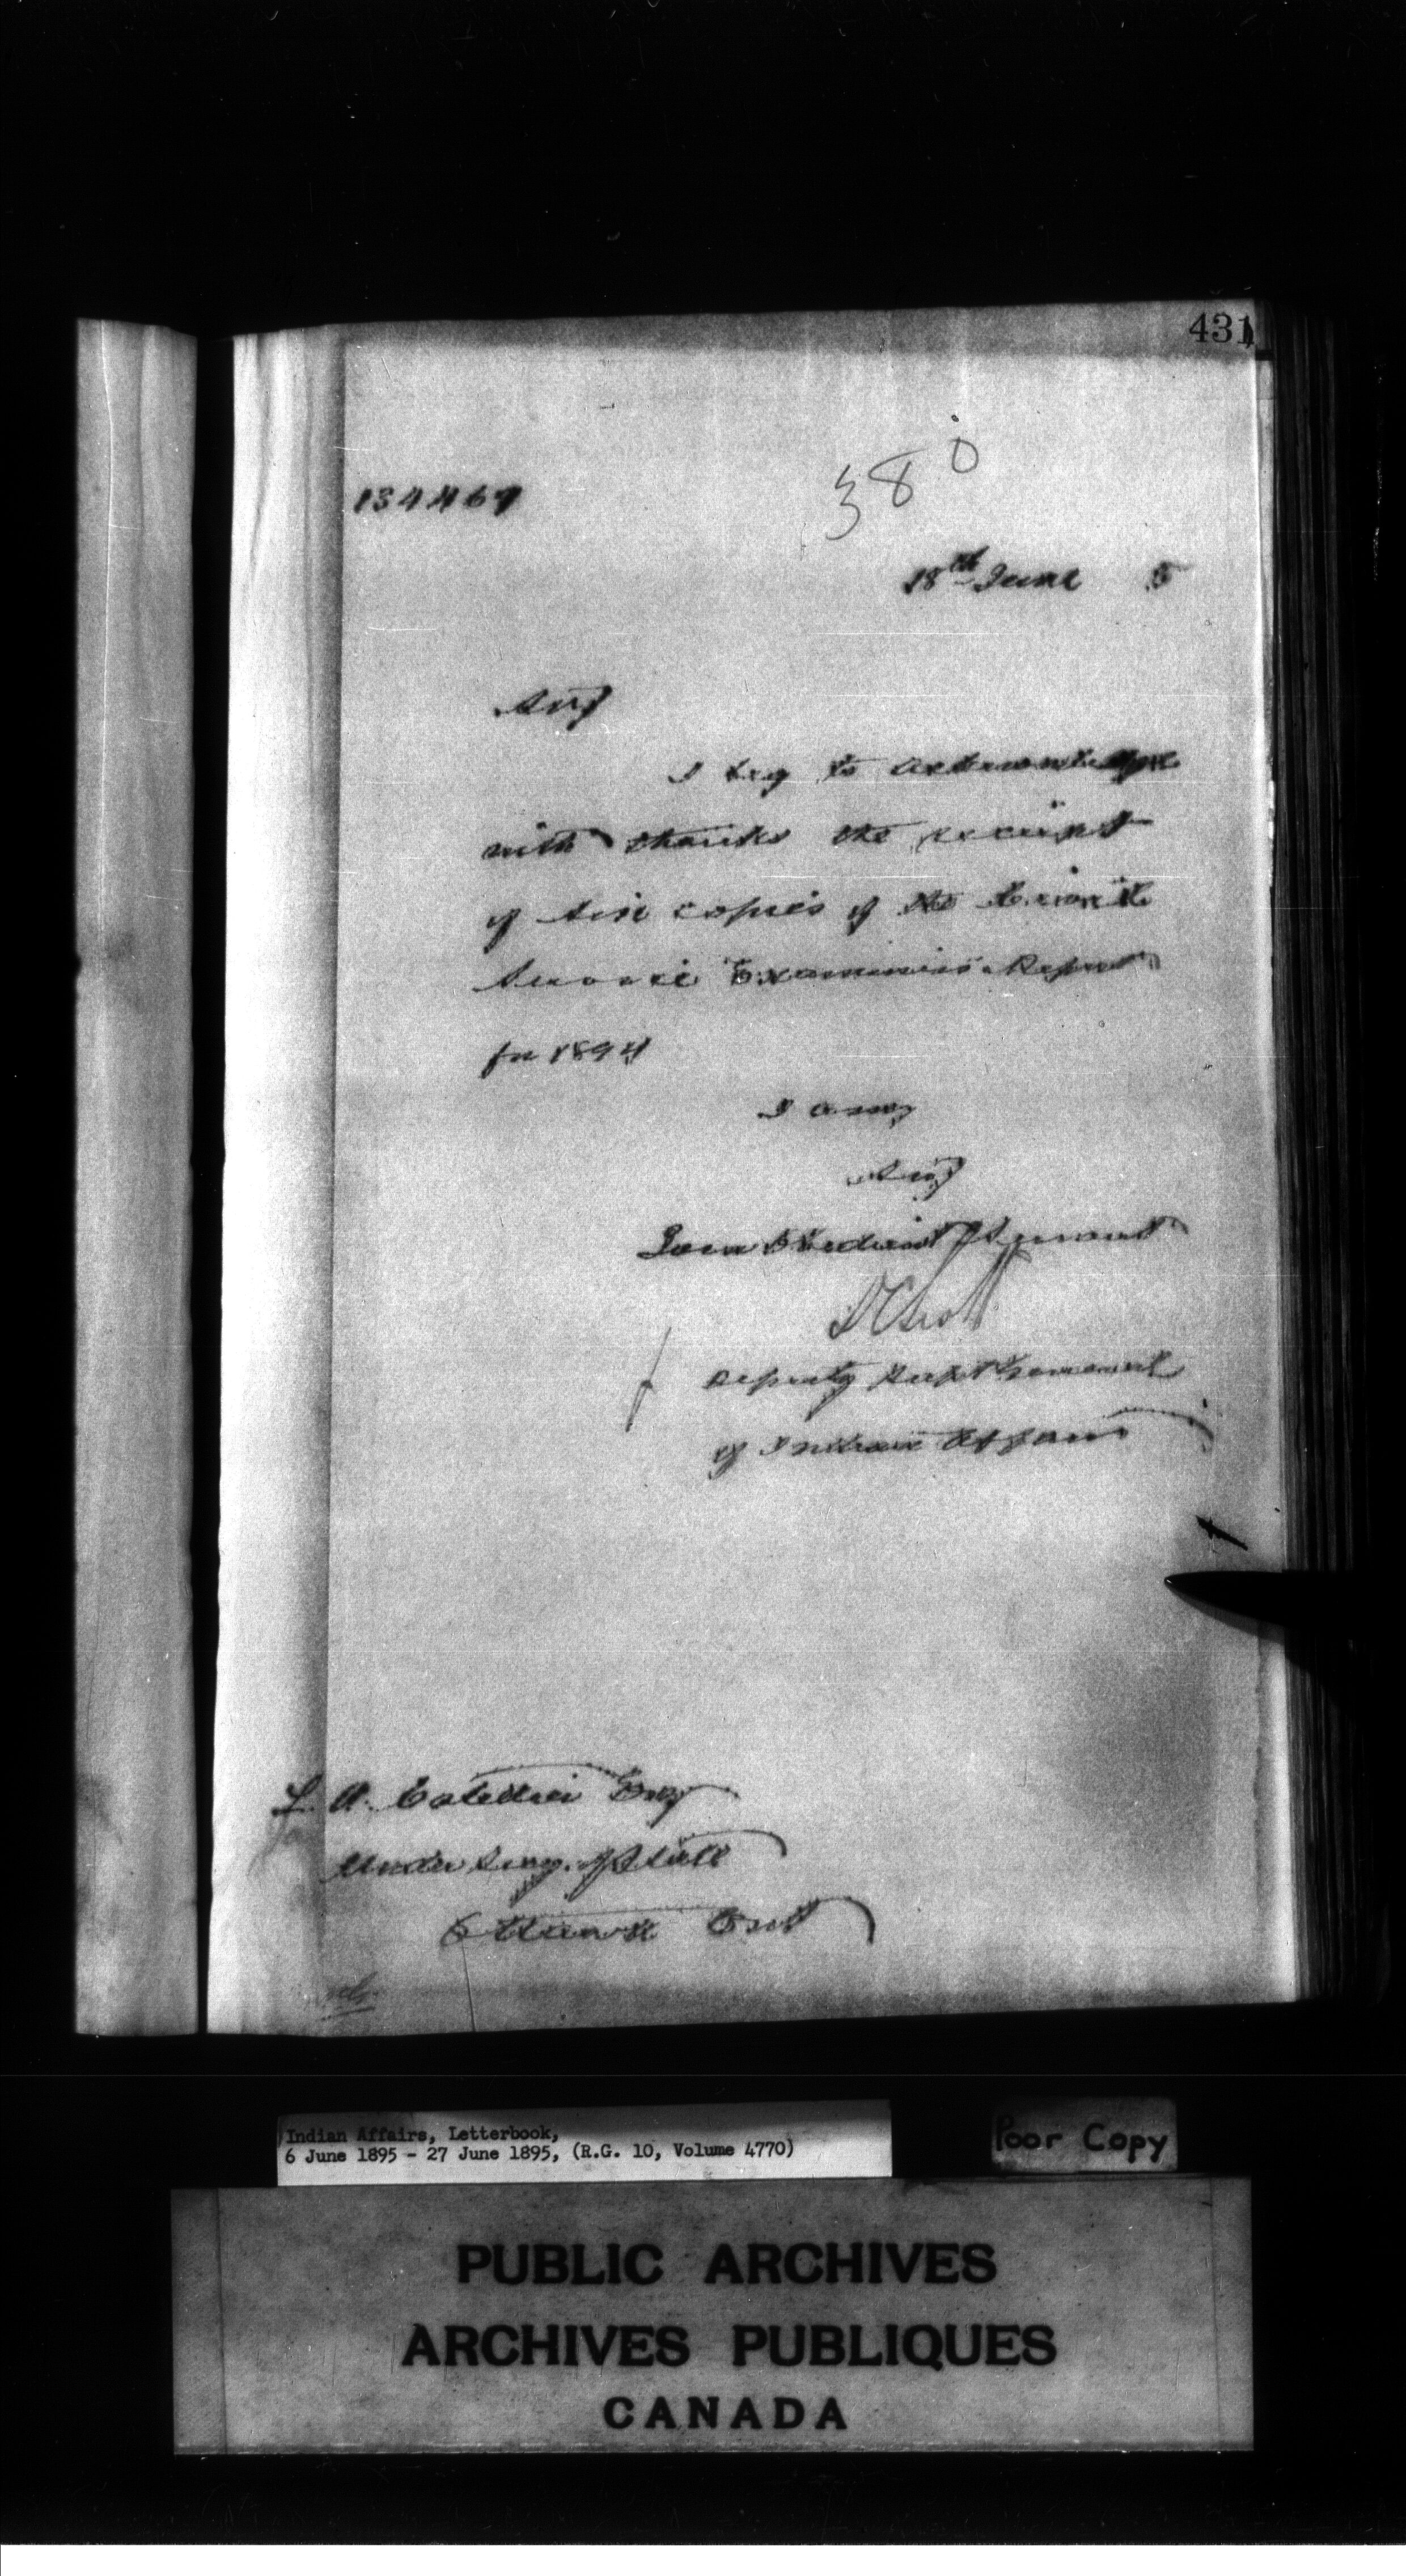 431
380
134469
18th June 5
Sir,
I beg to acknowledge
with thanks the receipt
of six copies of the Civil
Service Examiners Report
for 1894
I am,
Sir,
Your obedient Servant
Deputy Supt General
of Indian Affairs
L. A. Catellier Esq
Under Secy. of State
Ottawa Ont
Indian Affairs, Letterbook,
6 June 1895 - 27 June 1895, (R.G. 10, Volume 4770)
Poor Copy
PUBLIC ARCHIVES
ARCHIVES PUBLIQUES
CANADA